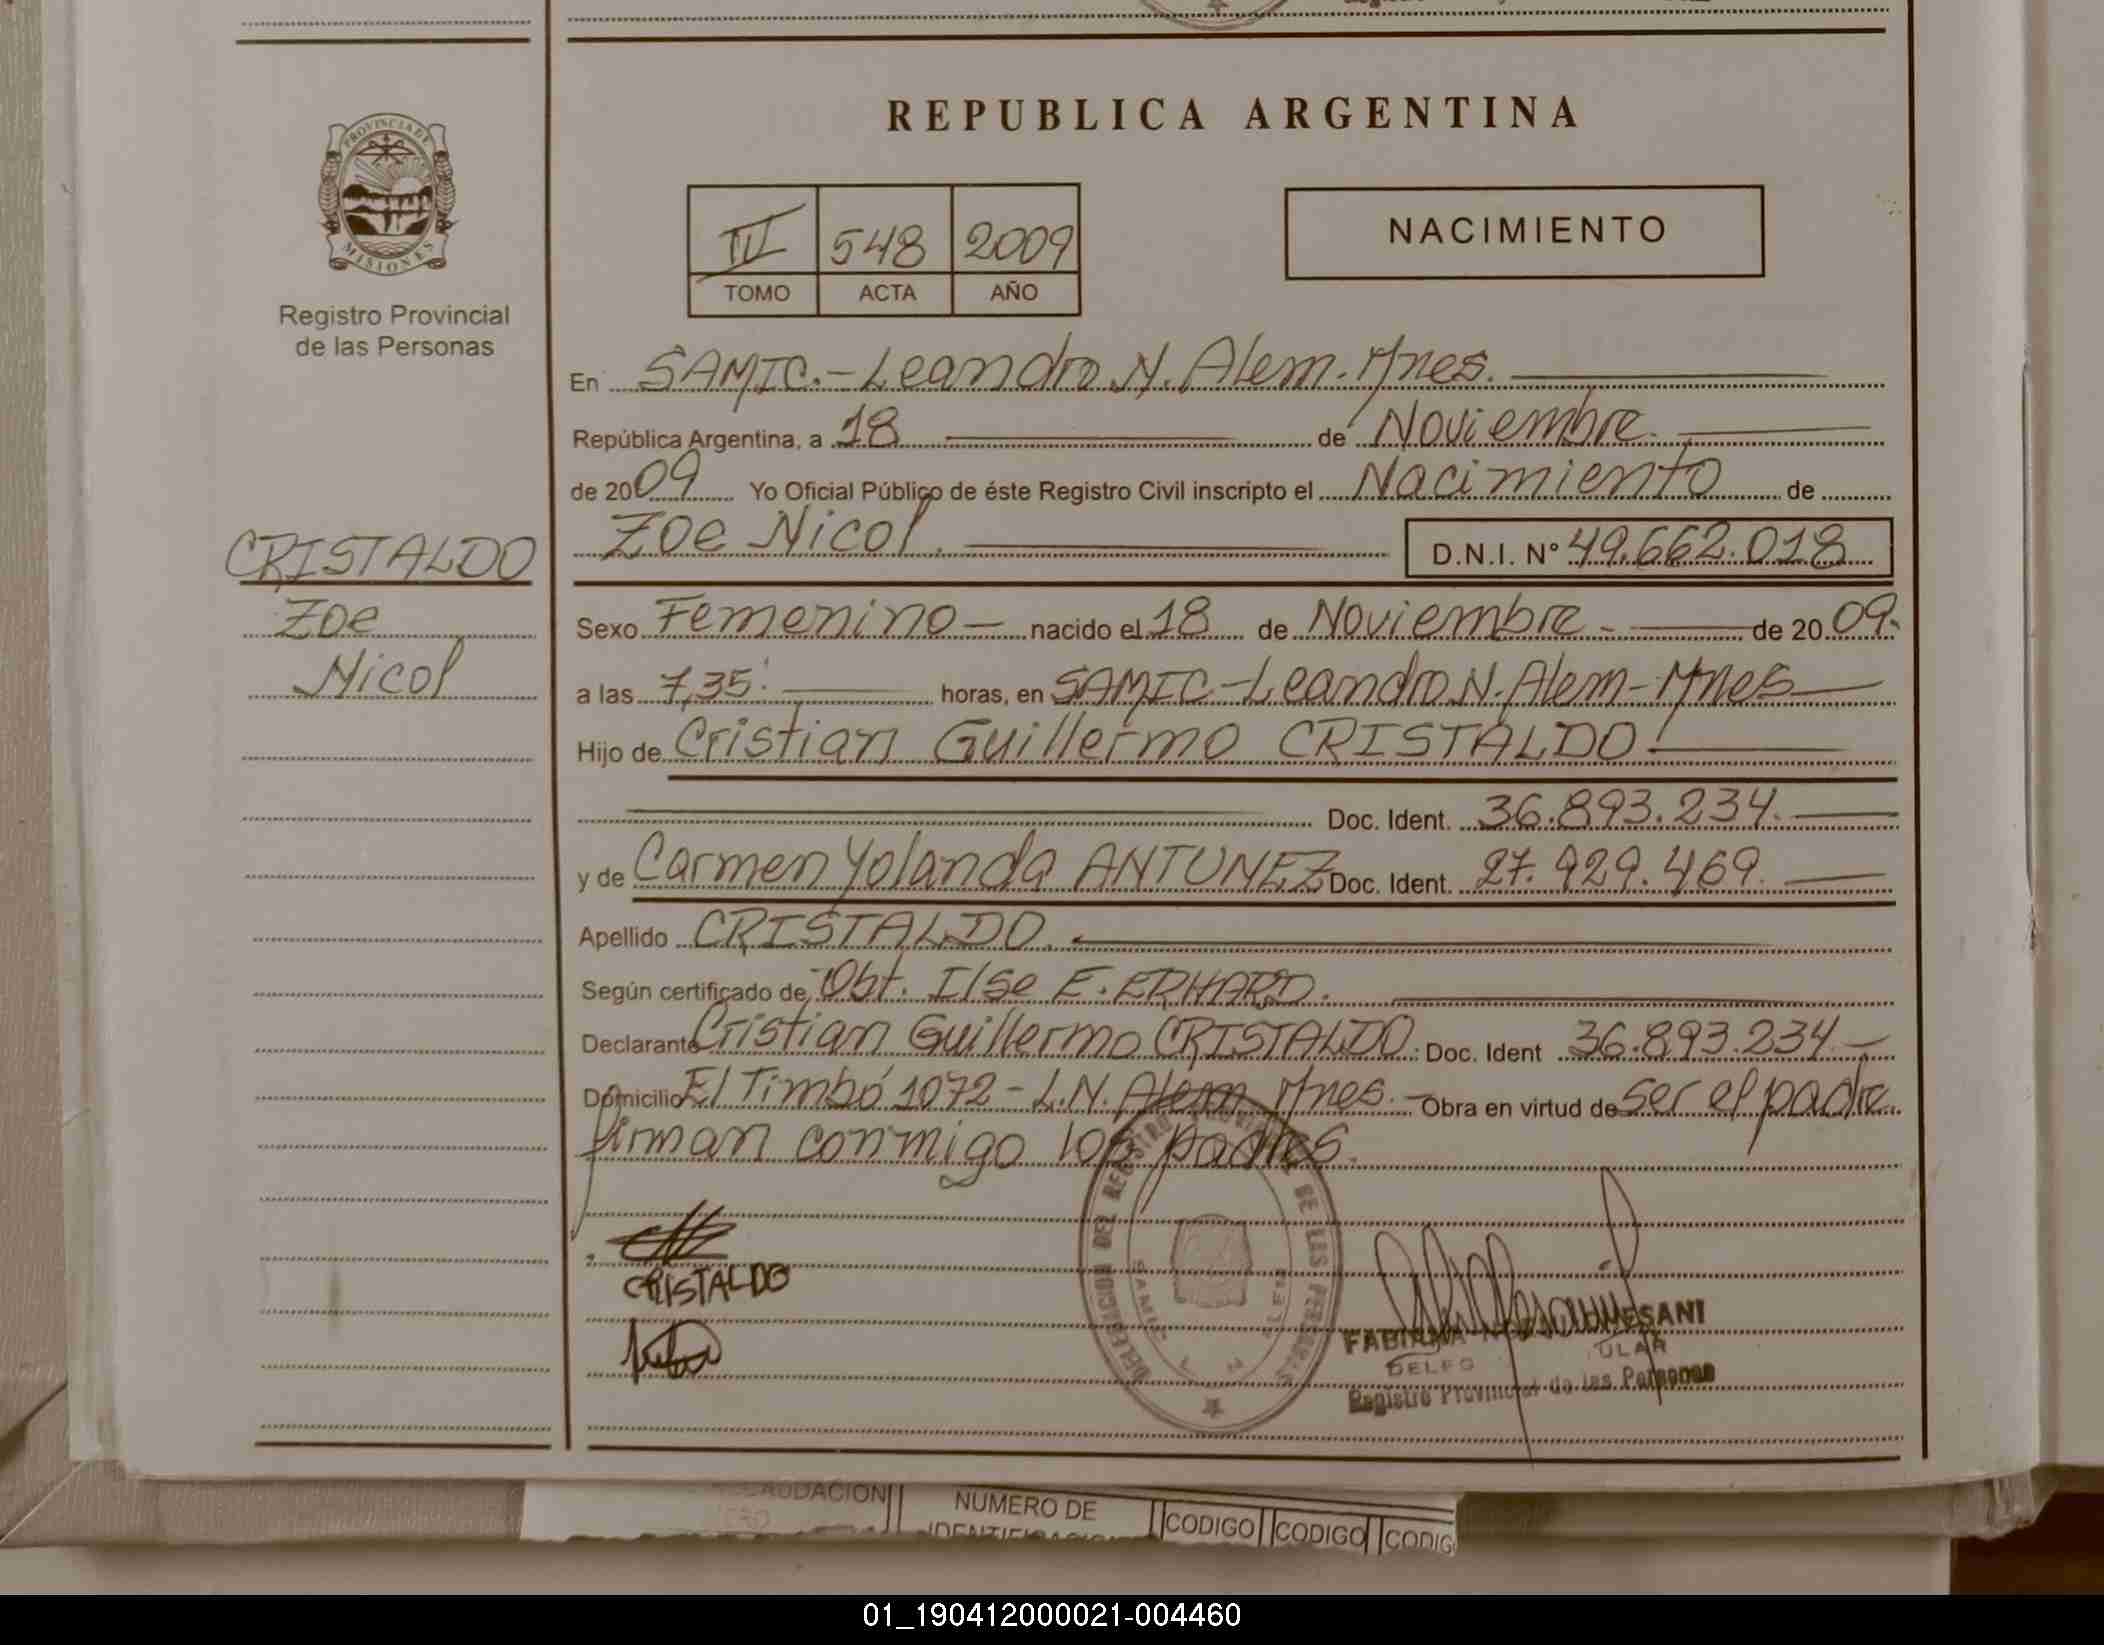 REPUBLICA ARGENTINA
PROVINCIA DE
MISIONES
Registro Provincial
de las Personas
III 548 2009
TOMO ACTA AÑO
NACIMIENTO
En SAMIC.-Leandro N. Alem. Mnes.
República Argentina, a 18 de Noviembre.
de 2009 Yo Oficial Público de éste Registro Civil inscripto el Nacimiento de
Zoe Nicol. D.N.I. N° 49.662.018
CRISTALDO
Zoe
Nicol
Sexo Femenino nacido el 18 de Noviembre. de 2009.
a las 7,35. horas, en SAMIC-Leandro N. Alem-Mnes
Hijo de Cristian Guillermo CRISTALDO.
Doc. Ident. 36.893.234.
y de Carmen Yolanda ANTUNEZ Doc. Ident. 27.929.469.
Apellido CRISTALDO.
Según certificado de Obt. Ilse E. ERHARD.
Declarante Cristian Guillermo CRISTALDO. Doc. Ident 36.893.234.
Domicilio El Timbó 1072-L.N. Alem Mnes. Obra en virtud de ser el padre.
firman conmigo los padres.
CRISTALDO
DELEGACION DEL REGISTRO PROVINCIAL DE LAS PERSONAS
SAMIC L N ALEM
Registro Provincial de las Personas
NUMERO DE
CODIGO CODIGO
01_190412000021-004460